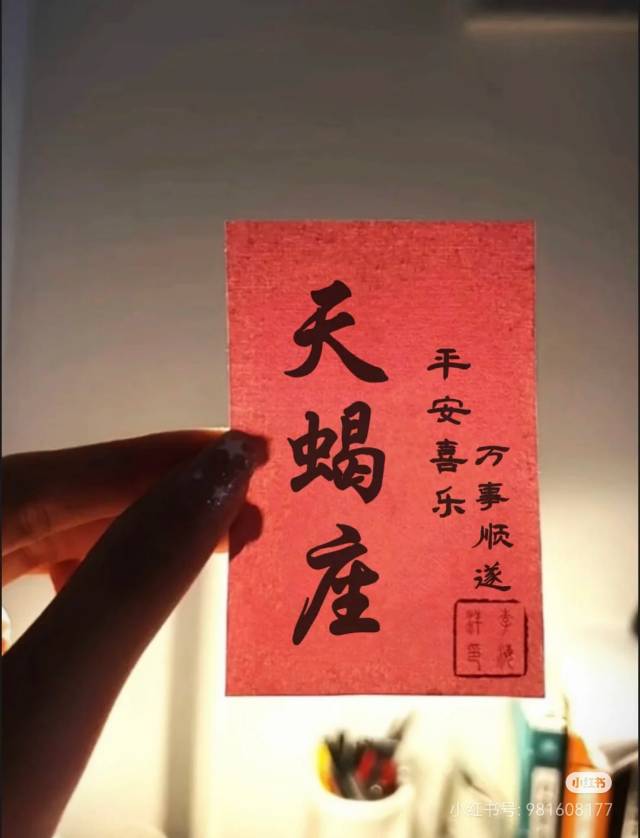 天蝎座
平安喜乐
万事顺遂
小红书
小红书号: 981608177